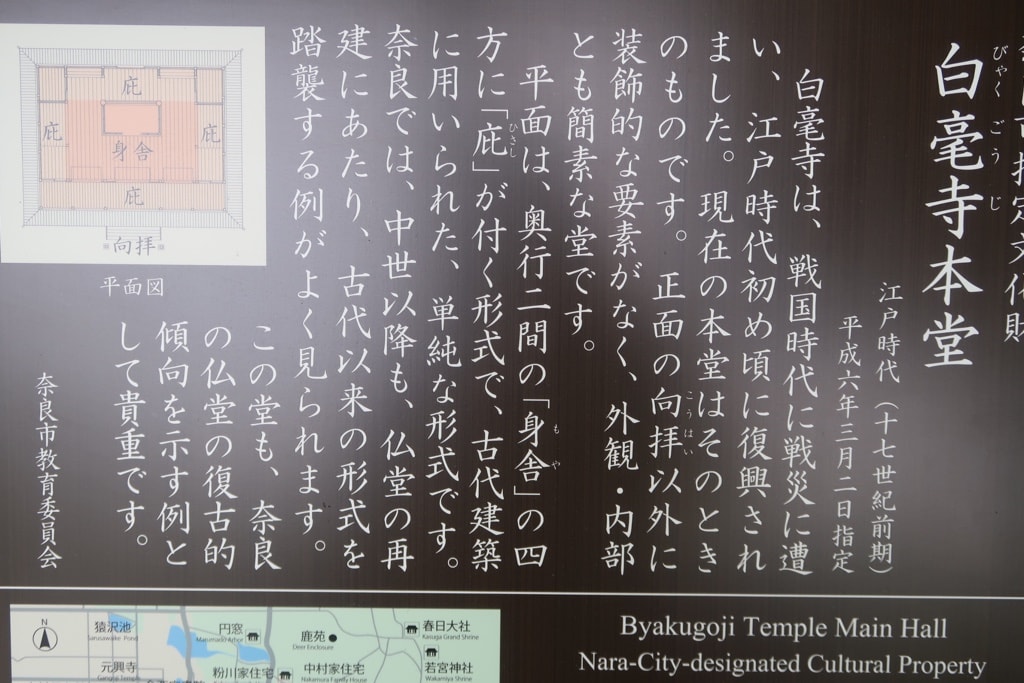 指定文化財
白毫寺本堂
びゃくごうじ
江戸時代（十七世紀前期）
平成六年三月二日指定
白毫寺は、戦国時代に戦災に遭
い、江戸時代初め頃に復興され
ました。現在の本堂はそのとき
のものです。正面の向拝以外に
こうはい
装飾的な要素がなく、外観・内部
とも簡素な堂です。
平面は、奥行二間の「身舎」の四
もや
方に「庇」が付く形式で、古代建築
ひさし
に用いられた、単純な形式です。
奈良では、中世以降も、仏堂の再
建にあたり、古代以来の形式を
踏襲する例がよく見られます。
この堂も、奈良
の仏堂の復古的
傾向を示す例と
して貴重です。
奈良市教育委員会
庇
庇
庇
身舎
庇
向拝
平面図
N
猿沢池
Sarusawaike Pond
元興寺
Gangoji Temple
円窓
Marumado Arbor
粉川家住宅
鹿苑
Deer Enclosure
中村家住宅
Nakamura Family House
春日大社
Kasuga Grand Shrine
若宮神社
Wakamiya Shrine
Byakugoji Temple Main Hall
Nara-City-designated Cultural Property